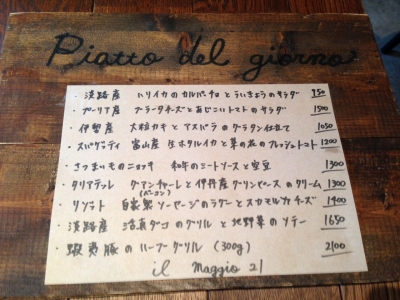 Piatto del giorno
・淡路産 ハリイカのカルパッチョとういきょうのサラダ 950
・プーリア産 ブラータチーズとあじこいトマトのサラダ 1500
・伊勢産 大粒カキとアスパラのグラタン仕立て 1050
・スパゲッティ 富山産 生ホタルイカと菜の花のフレッシュトマト 1200
・さつまいものニョッキ 和牛のミートソースと空豆 1300
・タリアテッレ グアンチャーレと伊丹産グリンピースのクリーム 1300
(ベーコン)
・リゾット 自家製ソーセージのラグーとスカモルツァチーズ 1400
・淡路産 活真ダコのグリルと地野菜のソテー 1650
・蝦夷豚のハーブグリル (300g) 2100
il Maggio 21